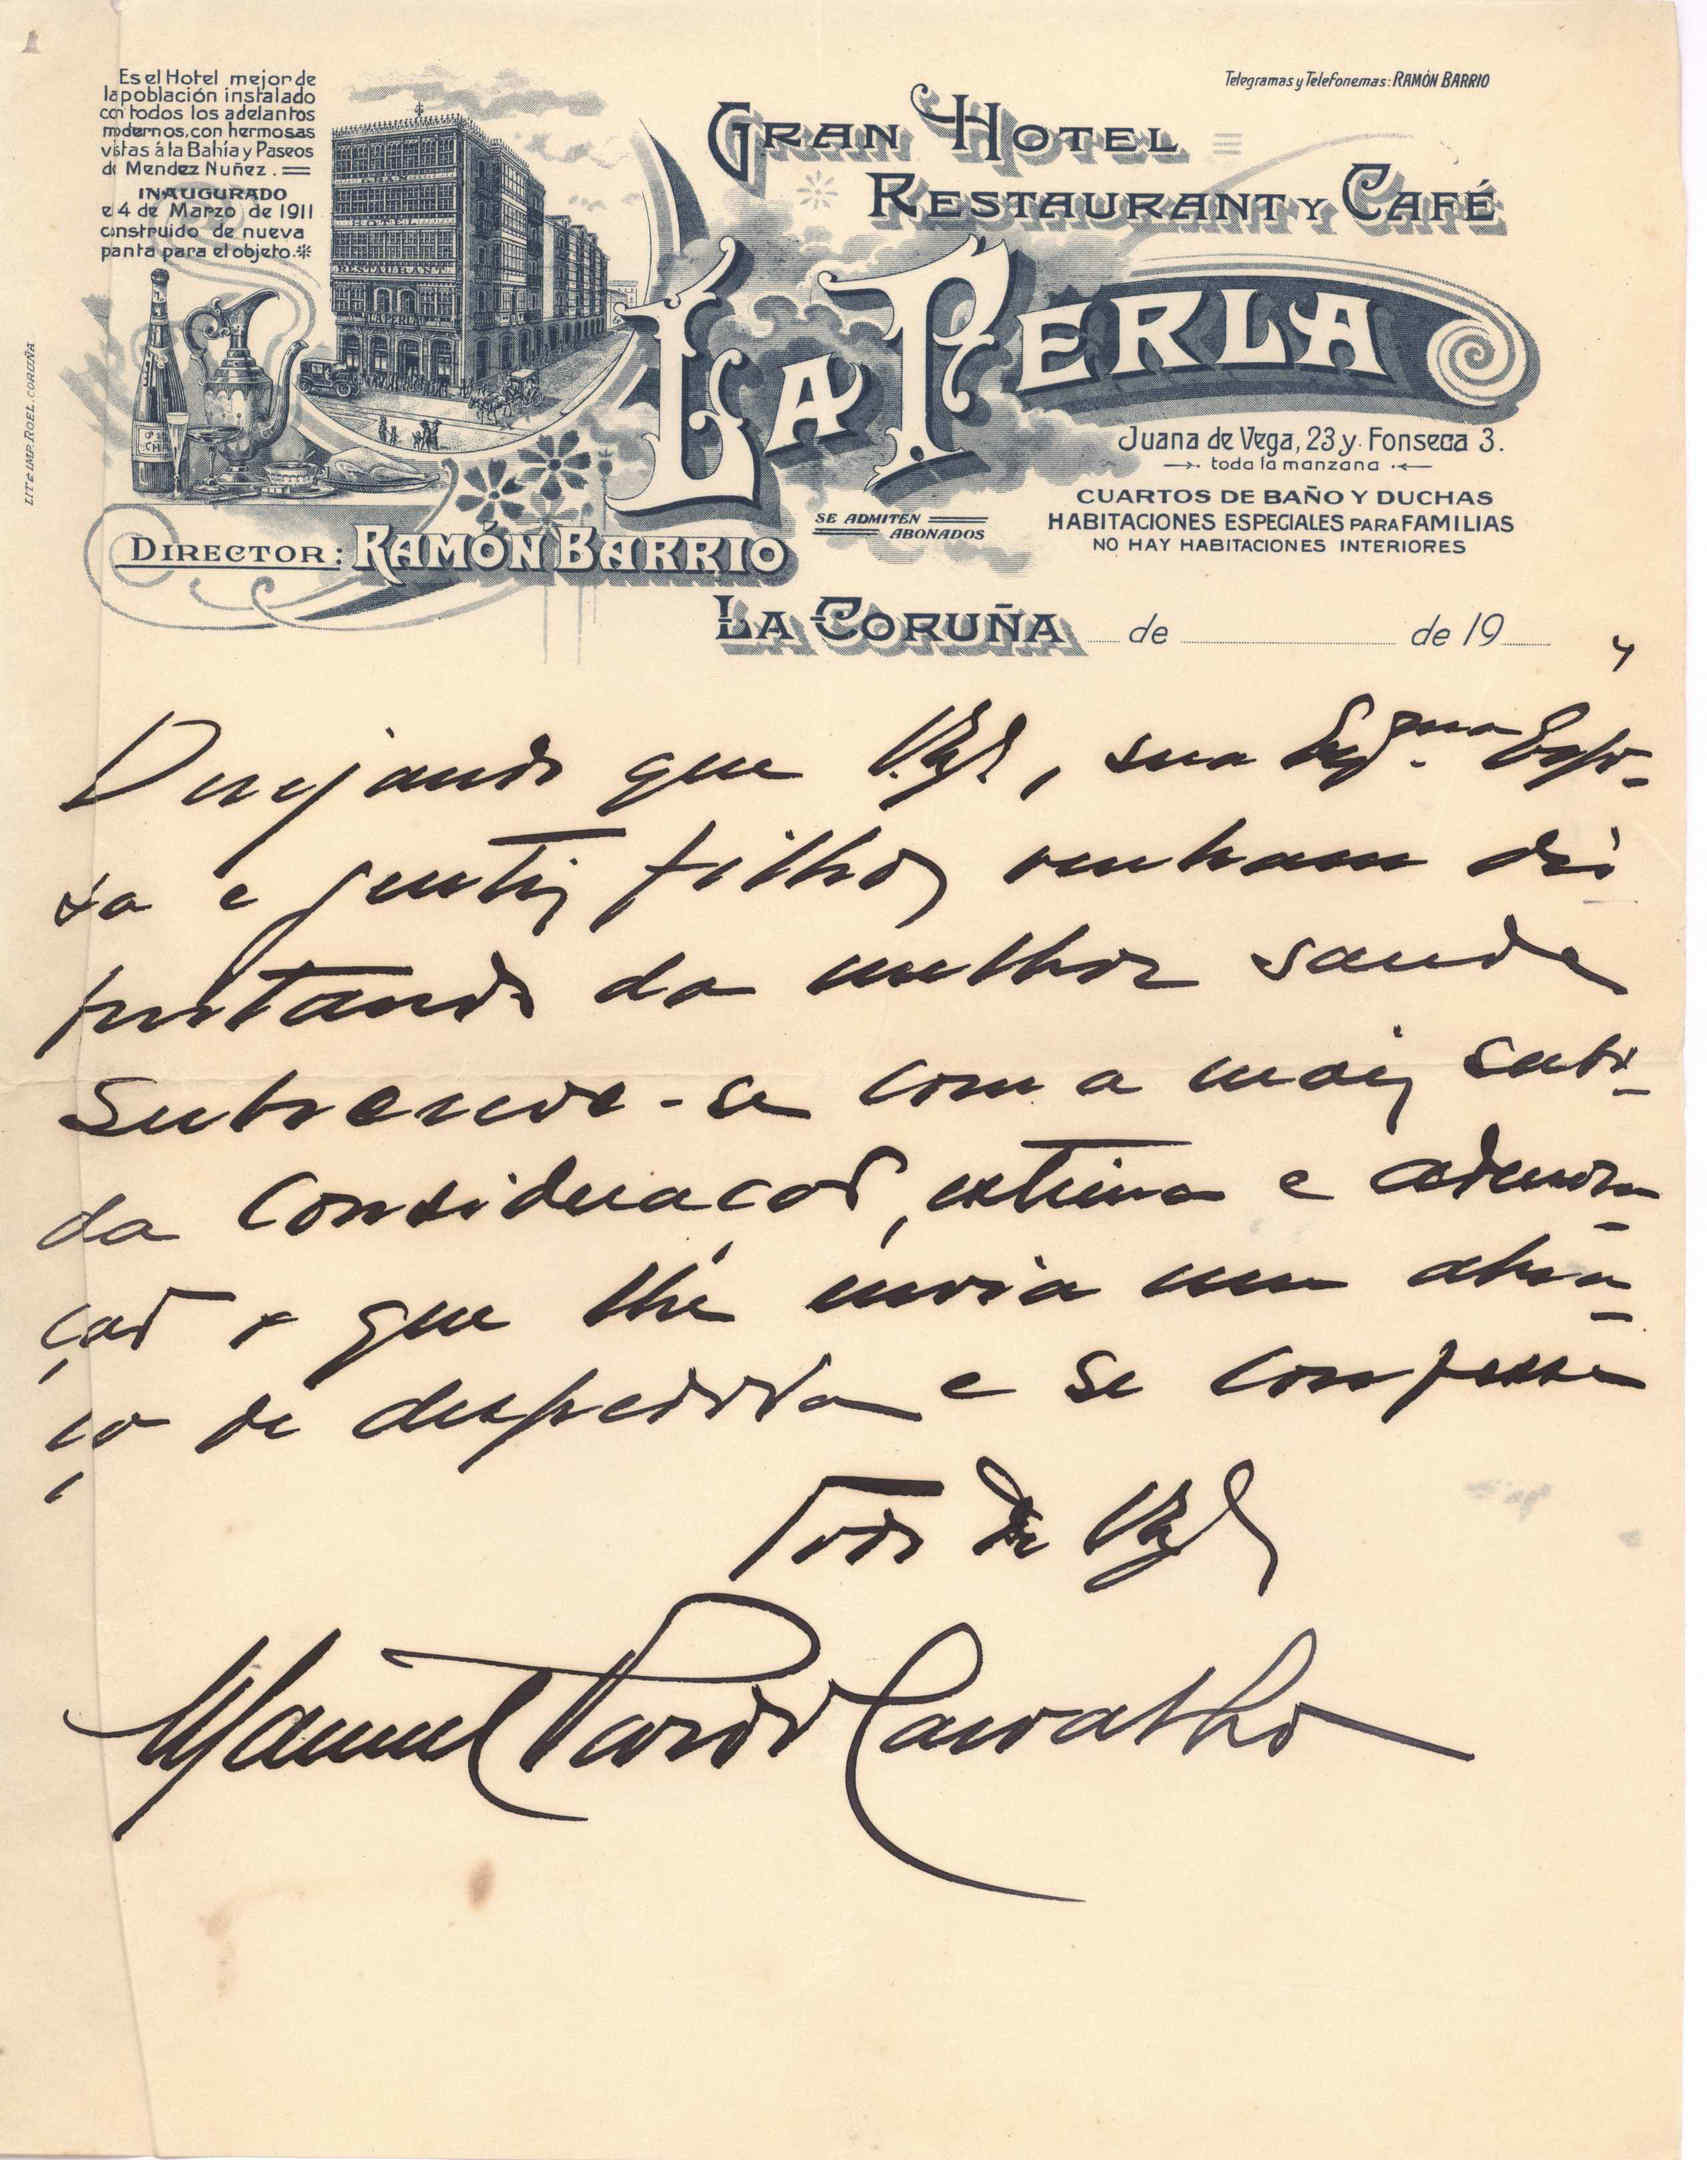 Telegramas y Telefonemas: RAMÓN BARRIO
Es el Hotel mejor de
la población instalado
con todos los adelantos
modernos, con hermosas
vistas á la Bahía y Paseos
de Mendez Nuñez.
INAUGURADO
el 4 de Marzo de 1911
construido de nueva
planta para el objeto.
GRAN HOTEL
RESTAURANT Y CAFÉ
LA PERLA
HOTEL
RESTAURANT
LIT. é IMP. ROEL. CORUÑA
Juana de Vega, 23 y Fonseca 3.
toda la manzana
SE ADMITEN
ABONADOS
CUARTOS DE BAÑO Y DUCHAS
HABITACIONES ESPECIALES PARA FAMILIAS
NO HAY HABITACIONES INTERIORES
DIRECTOR: RAMÓN BARRIO
LA CORUÑA de de 19
4
Desejando que V. Ex.ª, sua Espo-
sa e gentis filhos venham dis
frutando da melhor saude
Subscreve-se com a mais subi-
da consideração, estima e admira-
ção o que lhe envia um abra-
ço de despedida e se confessa
Todo De V Ex
Manuel Pardo Carvalho